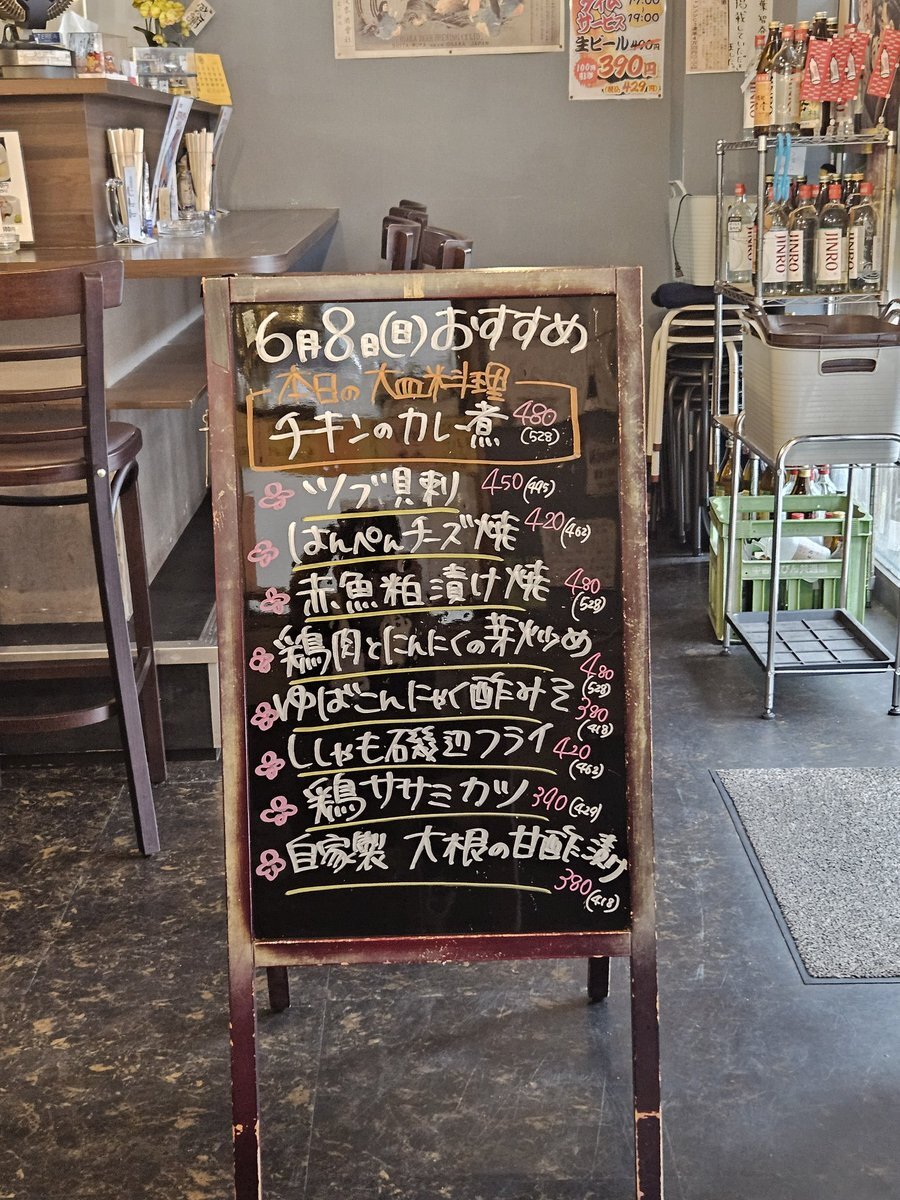 タイム
サービス
17:00
19:00
生ビール 490円
100円
引き
390円
(税込 429円)
JINRO
JINRO
JINRO
6月8日(日)おすすめ
本日の大皿料理
チキンのカレー煮 480
(528)
ツブ貝刺 450(495)
はんぺんチーズ焼 420(462)
赤魚粕漬け焼 480
(528)
鶏肉とにんにくの芽炒め
480
(528)
ゆばこんにゃく酢みそ 380
(418)
ししゃも磯辺フライ 420
(462)
鶏ササミカツ 390(429)
自家製 大根の甘酢漬け
380(418)